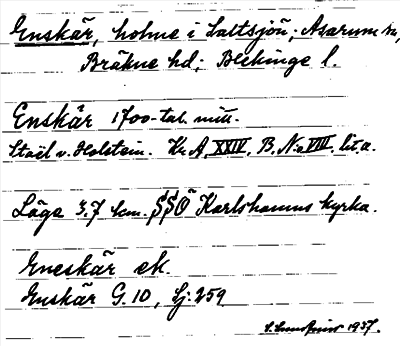 Enskär, holme i Saltsjön; Asarum sn,
Bräkne hd; Blekinge l.
Enskär 1700-tal. mitt.
Staël v. Holstein. Kr. A, XXIV, B. No VIII, lit. a.
Läge 3.7 km. SSO Karlshamns kyrka.
Eneskär ek.
Enskär G. 10, Lj: 259
1937.